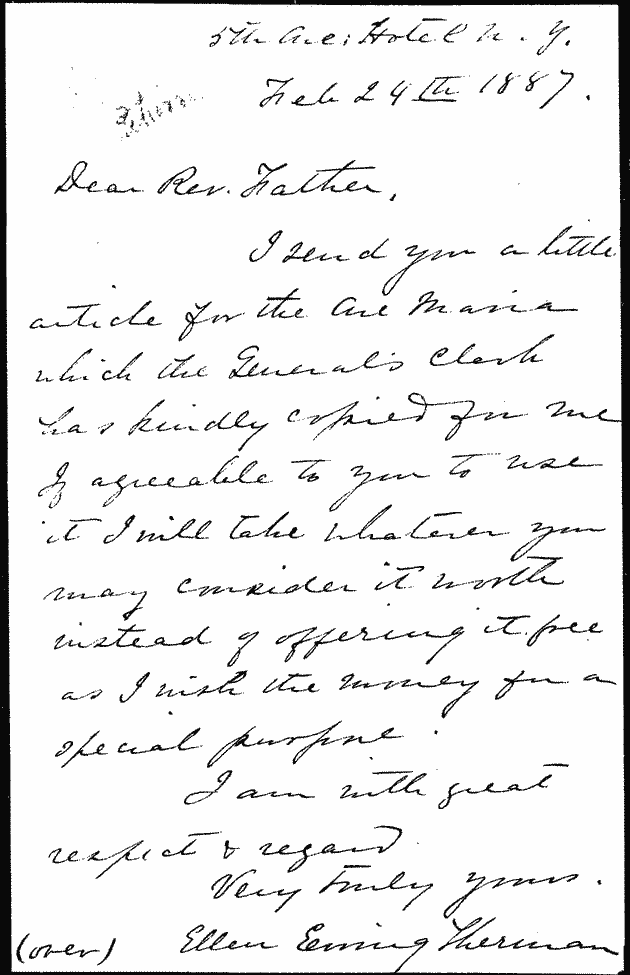 5th Ave: Hotel N. Y.
Feb 24th 1887.
Dear Rev. Father,
I send you a little
article for the Ave Maria
which the General's Clerk
has kindly copied for me
If agreeable to you to use
it I will take whatever you
may consider it worth
instead of offering it free
as I wish the money for a
special purpose.
I am with great
respect & regard
Very truly yours.
(over) Ellen Ewing Sherman